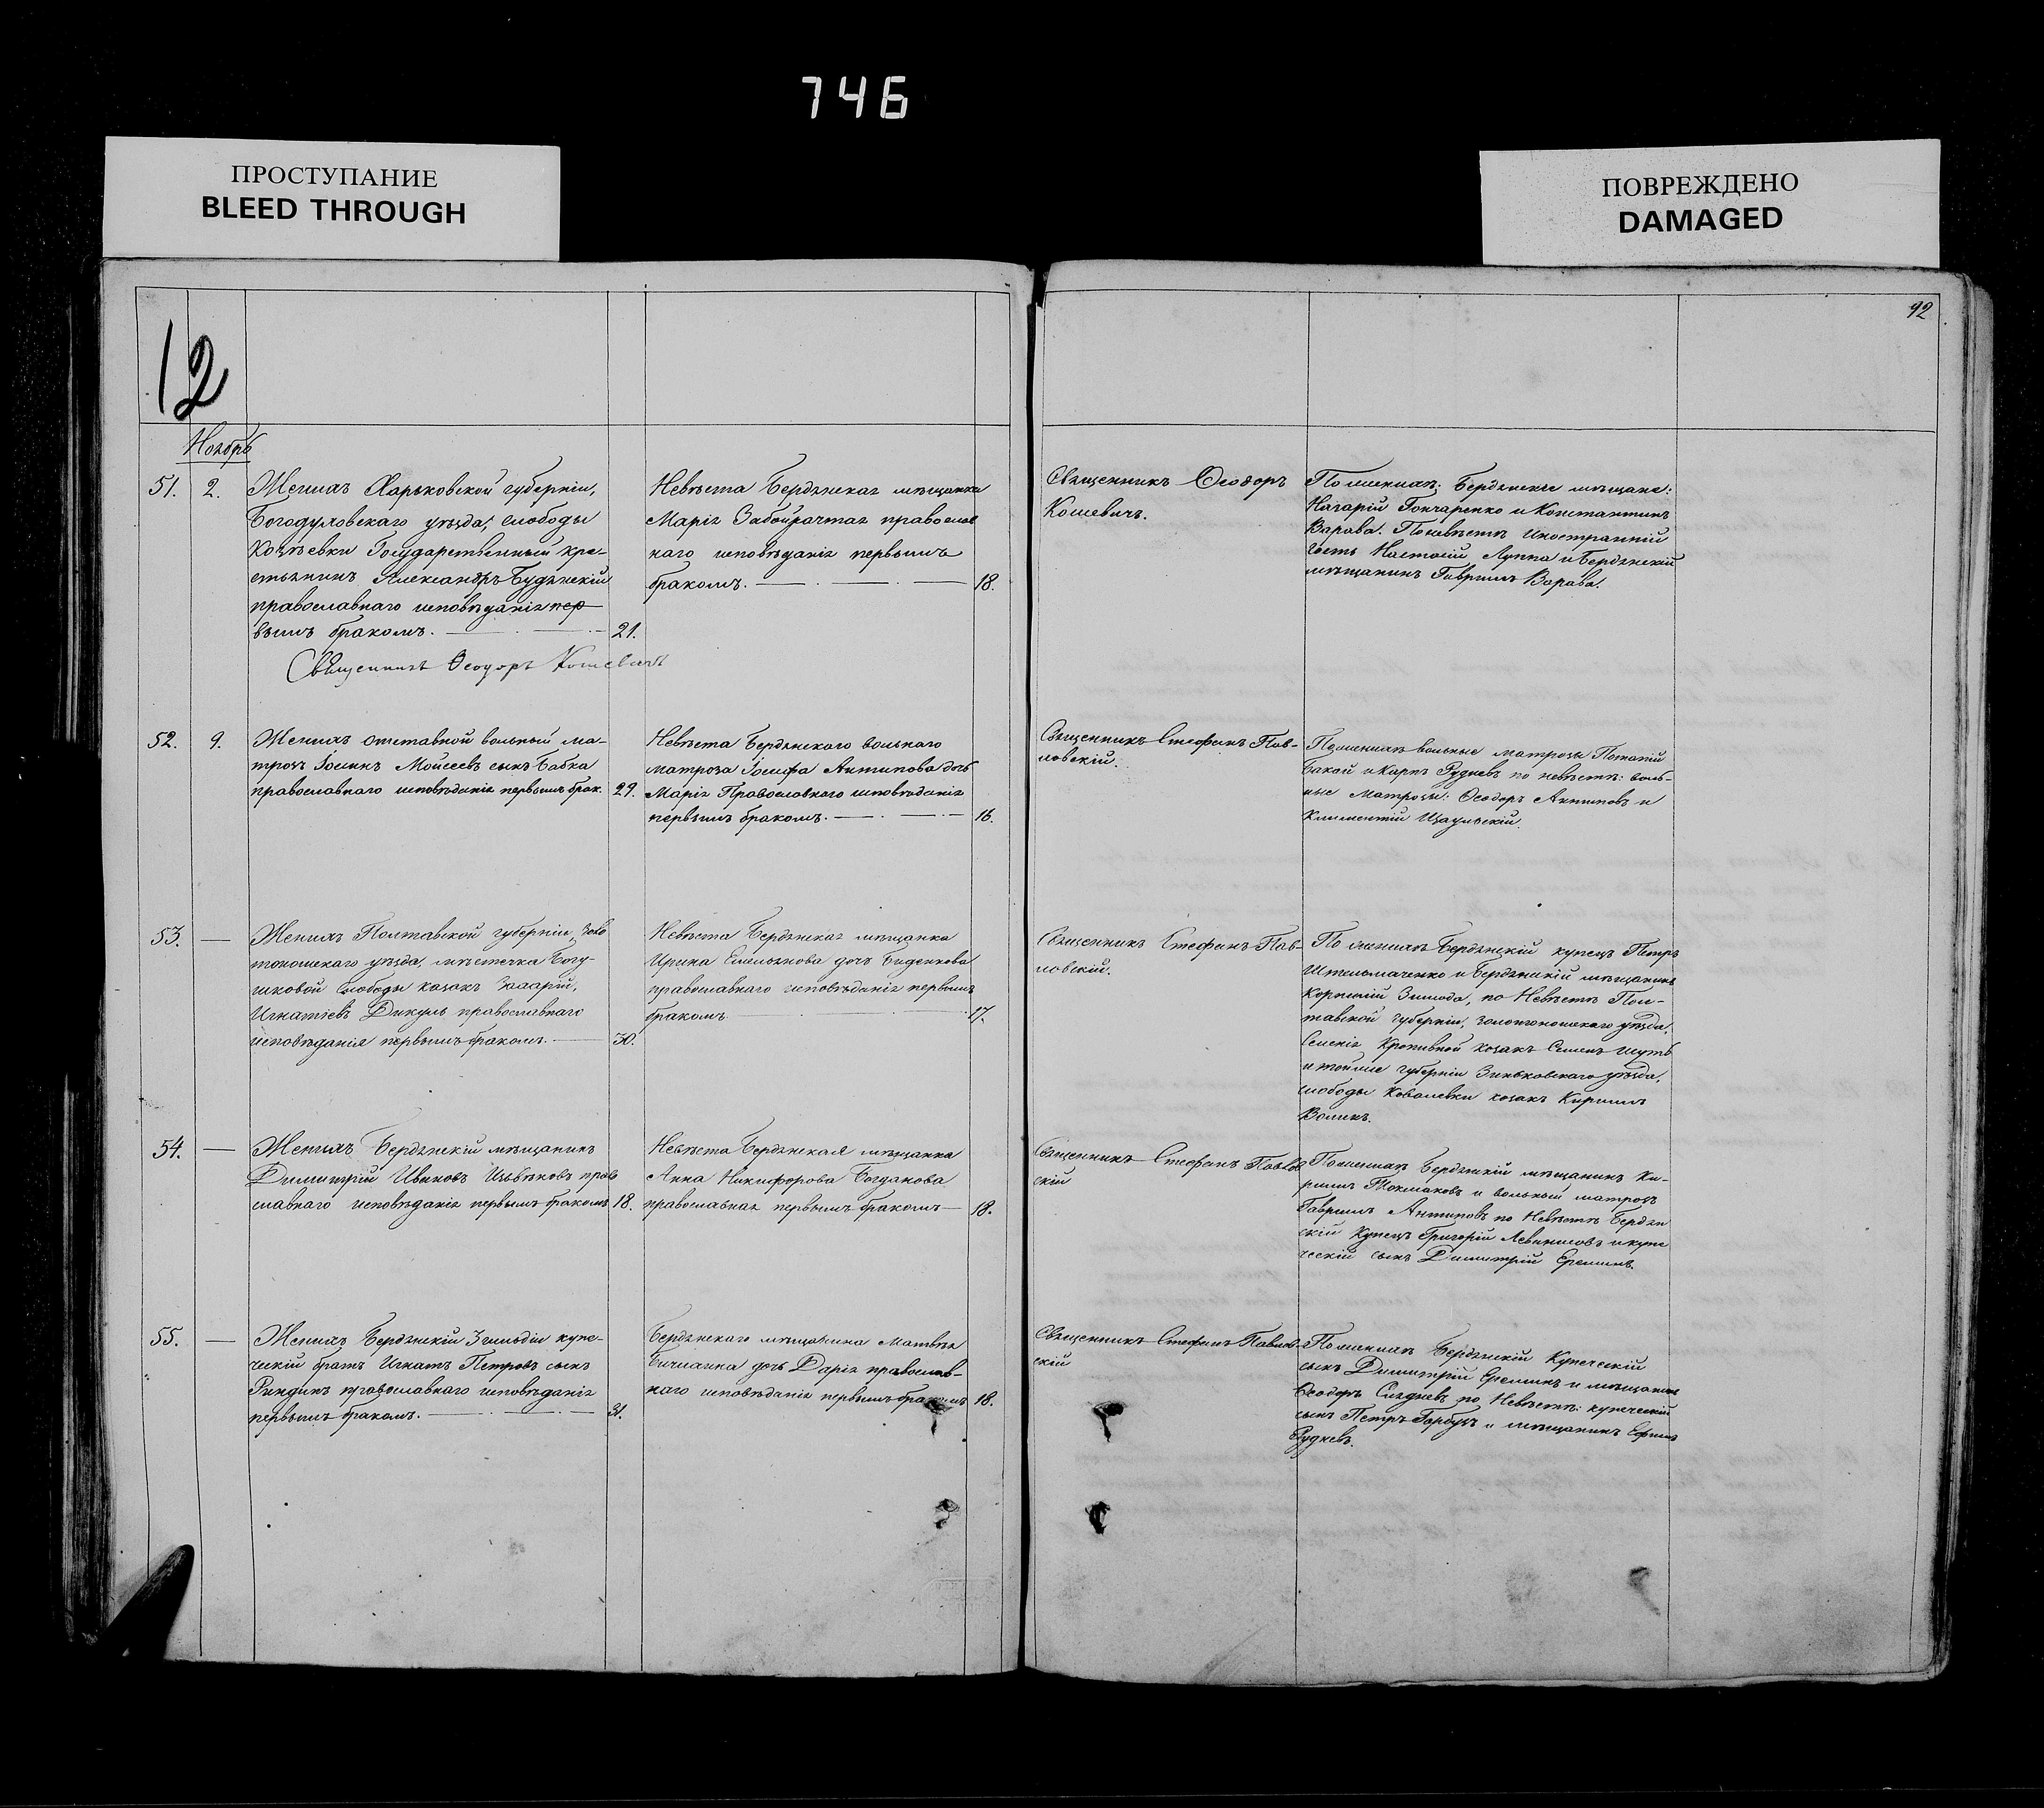 746
ПРОСТУПАНИЕ
BLEED THROUGH
ПОВРЕЖДЕНО
DAMAGED
92
12
Ноябрь
51. 2. Женихъ Харьковской губерніи,
Богодуховскаго уѣзда, слободы
Козѣевки Государственный кре-
стьянинъ Александръ Будянскій
православнаго исповѣданія пер
вымъ бракомъ. 21.
Священникъ Ѳеодоръ Кошевичъ
Невѣста Бердянская мѣщанка
Марія православ
наго исповѣданія первымъ
бракомъ. 18.
Священникъ Ѳеодоръ
Кошевичъ.
По женихѣ: Бердянскіе мѣщане:
Назарій Гончаренко и Константинъ
Варава. По невѣстѣ Иностранній
гость Луппа и Бердянскій
мѣщанинъ Гавріилъ Варава.
52. 9. Женихъ отставной вольный ма-
тросъ Моисеевъ сынъ Бабка
православнаго исповѣданія первымъ брак. 29.
Невѣста Бердянскаго вольнаго
матроза Іосифа Антипова дочь
Марія Православнаго исповѣданія
первымъ бракомъ. 16.
Священникъ Стефанъ Пав-
ловскій.
По женихѣ вольные матрозы Потапій
и Карпъ Рудневъ по невѣстѣ: воль-
ные Матрозы: Ѳеодоръ Антиповъ и
Климентій
53. — Женихъ Полтавской губерніи, Золо
тоношскаго уѣзда, мѣстечка Богу-
шковой Слободы козакъ Захарій,
Игнатіевъ Дикуль православнаго
исповѣданія первымъ бракомъ. 30.
Невѣста Бердянская мѣщанка
Ирина Емельянова дочь Биденкова
православнаго исповѣданія первымъ
бракомъ 17.
Священникъ Стефанъ Пав-
ловскій.
По женихѣ Бердянскій купецъ Петръ
Штельмаченко и Бердянскій мѣщанинъ
Корнилій Зимода, по Невѣстѣ Пол-
тавской губерніи, Золотоношскаго уѣзда,
Селенія Кропивной козакъ Семенъ Шуть
и тойже губерніи Зиньковскаго уѣзда,
слободы Ковалевки козакъ Кириллъ
Воликъ.
54. — Женихъ Бердянскій мѣщанинъ
Димитрій Ивановъ Цыбѣковъ право
славнаго исповѣданія первымъ бракомъ 18.
Невѣста Бердянская мѣщанка
Анна Никифорова Богданова
православная первымъ бракомъ— 18.
Священникъ Стефанъ Павлов
скій
По женихѣ Бердянскій мѣщанинъ Ки-
риллъ Токмаковъ и вольный матрозъ
Гавріилъ Антиповъ по Невѣстѣ Бердян
скій Купецъ Григорій и купе
ческій сынъ Димитрій Ереминъ.
55. — Женихъ Бердянскій 3 гильдіи купе-
ческій братъ Игнатъ Петровъ сынъ
Рындинъ православнаго исповѣданія
первымъ бракомъ. 31.
Бердянскаго мѣщанина Матвѣя
дочь Дарія православ-
наго исповѣданія первымъ бракомъ 18.
Священникъ Стефанъ Павлов-
скій
По женихѣ Бердянскій Купеческій
сынъ Димитрій Ереминъ и мѣщанинъ
Ѳеодоръ по Невѣстѣ: купеческій
сынъ Петръ Горбузъ и мѣщанинъ Ефимъ
Рудневъ.